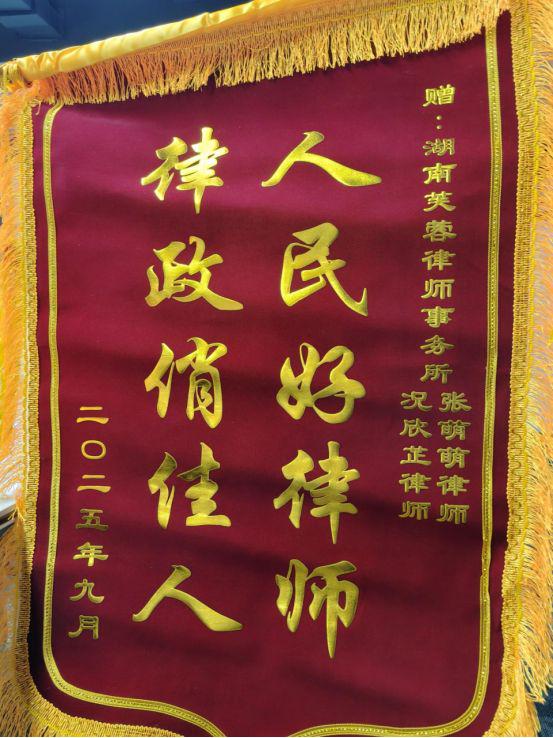 赠：湖南芙蓉律师事务所
张萌萌律师
况欣芷律师
人民好律师
律政俏佳人
二〇二五年九月